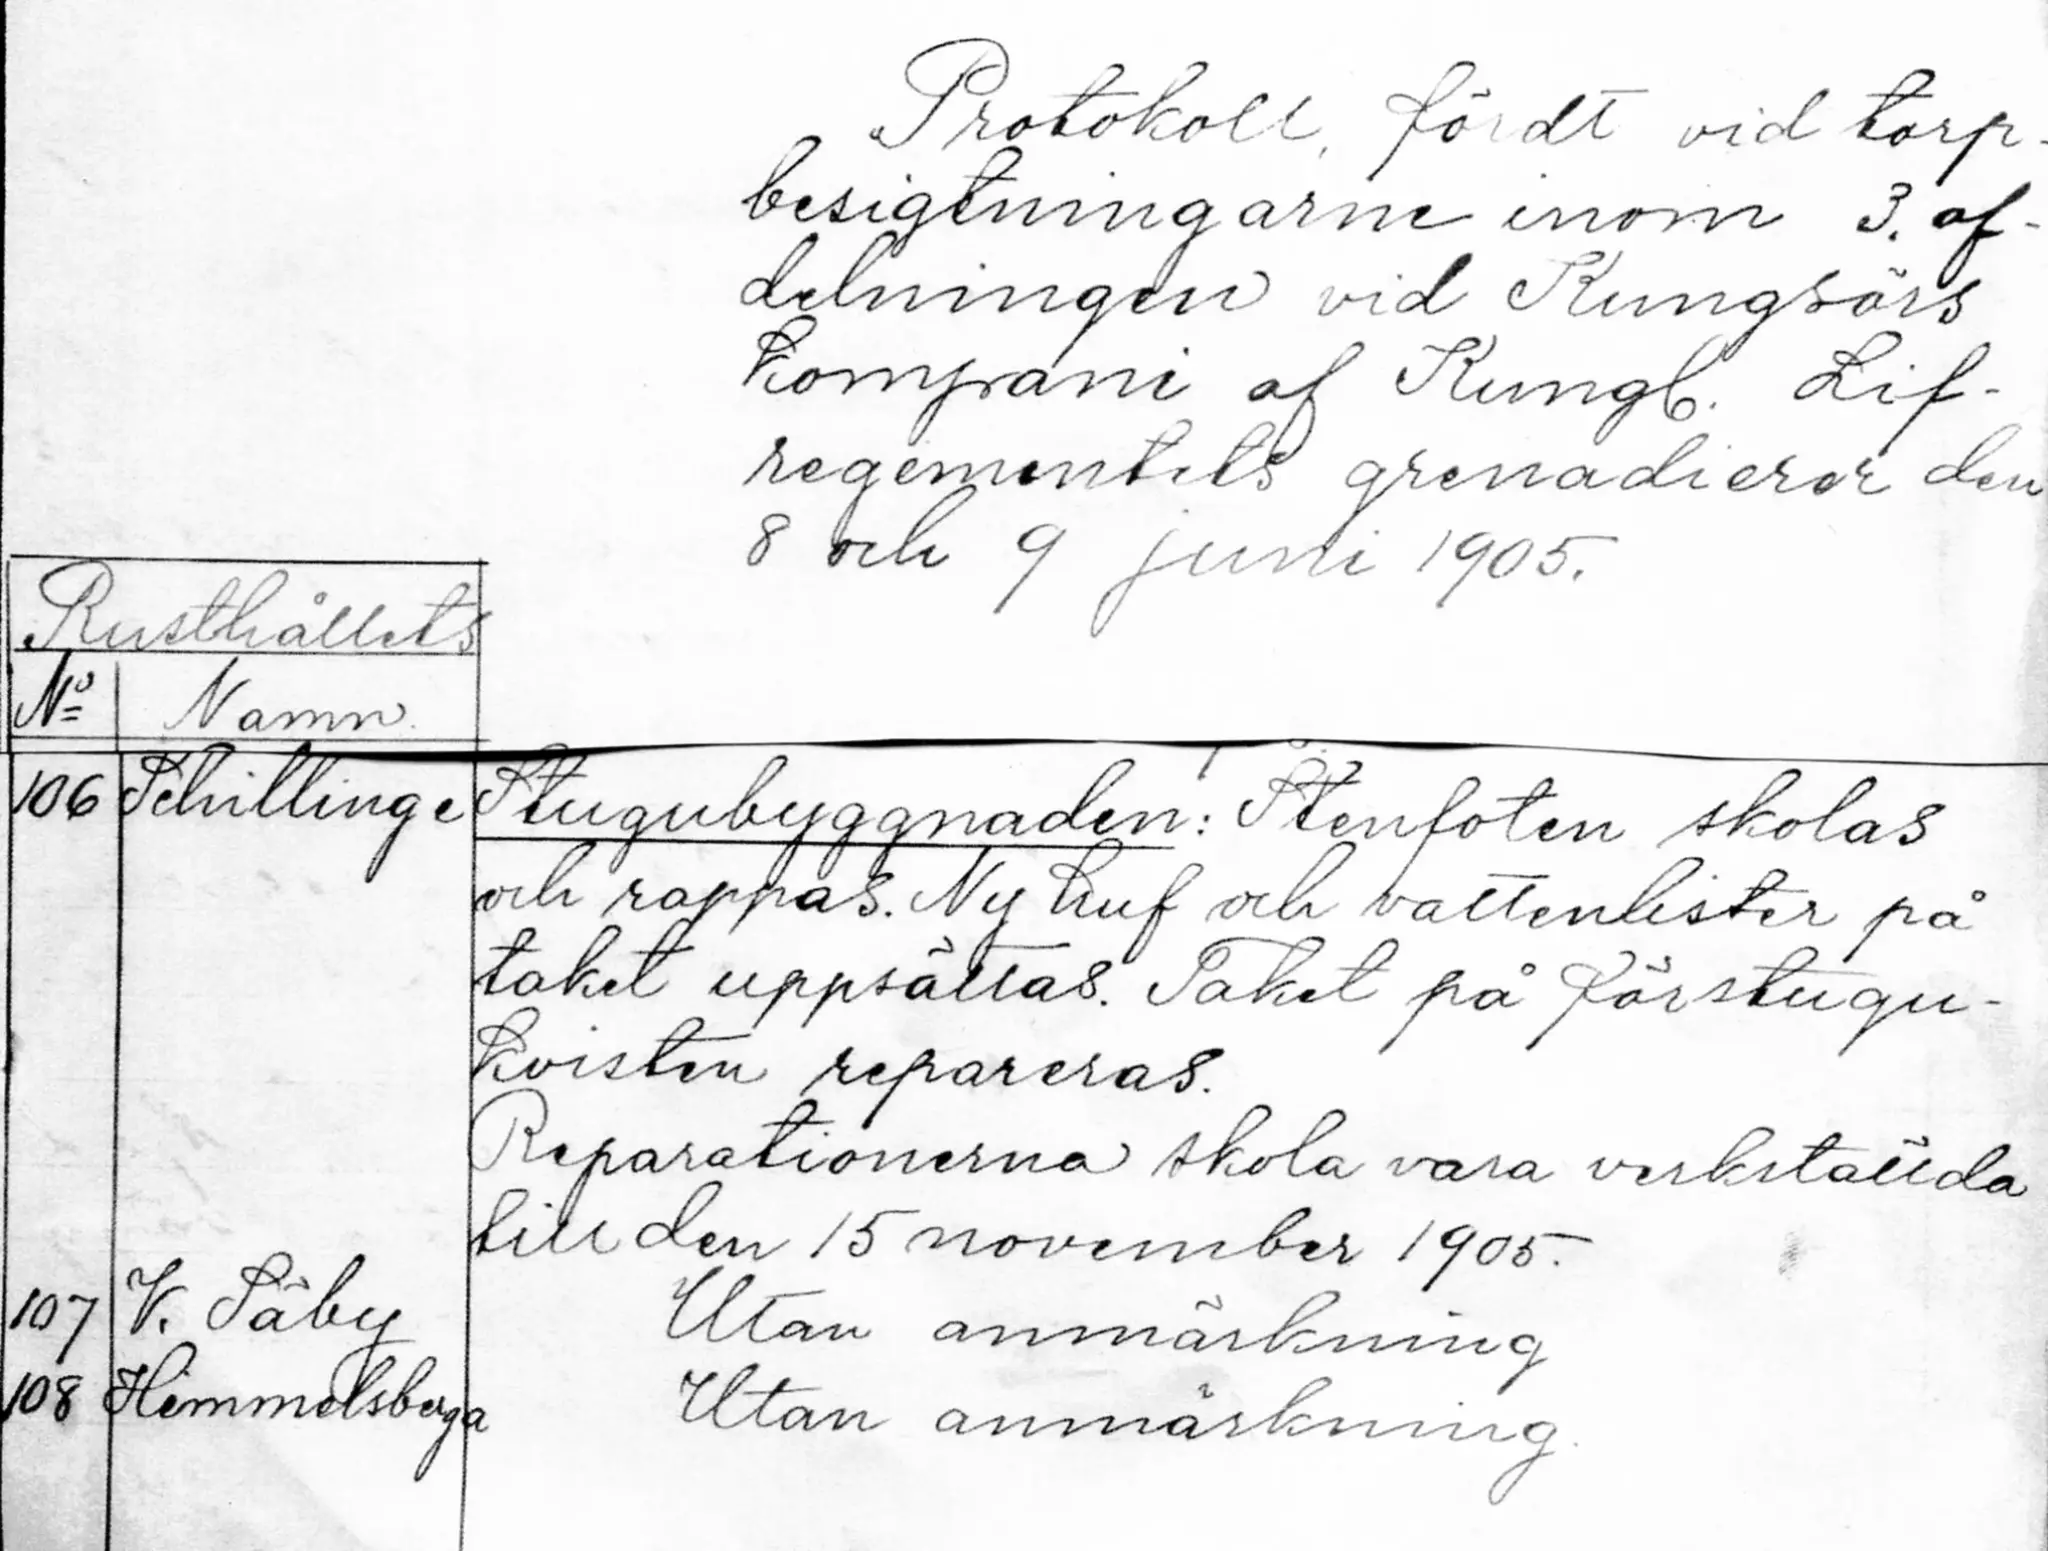 Protokoll, fördt vid torp-
besigtningarne inom 3. af-
delningen vid Kungsörs
kompani af Kungl. Lif-
regementets grenadierer den
8 och 9 juni 1905.
Rusthållets
No Namn.
106 Schillinge Stugubyggnaden: Stenfoten skolas
och rappas. Ny huf och vattenlister på
taket uppsättas. Taket på förstugu-
kvisten repareras.
Reparationerna skola vara verkställda
till den 15 november 1905.
107 V. Säby Utan anmärkning
108 Himmelsberga Utan anmärkning.